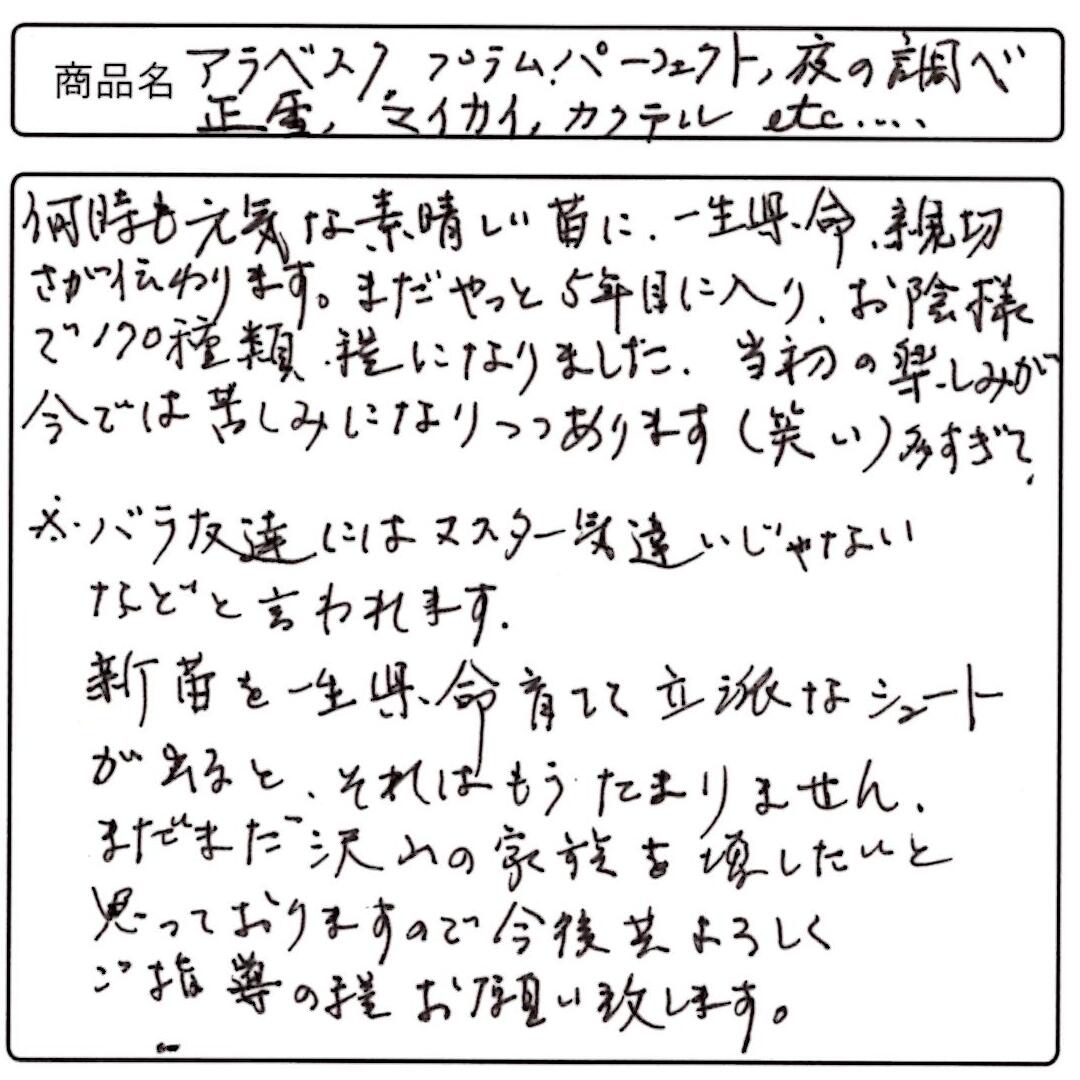 商品名 アラベスク、プラム.パーフェクト、夜の調べ
正雪、マイカイ、カクテル etc....
何時も元気な素晴しい苗に、一生県命、親切
さが伝わります。まだやっと5年目に入り、お陰様
で170種類程になりました、当初の楽しみが
今では苦しみになりつつあります(笑い)多すぎて、
※バラ友達にはマスター気違いじゃない
などと言われます.
新苗を一生県命育てて立派なシュート
が出ると、それはもうたまりません、
まだまだ沢山の家族を増したいと
思っておりますので今後共よろしく
ご指導の程お願い致します。